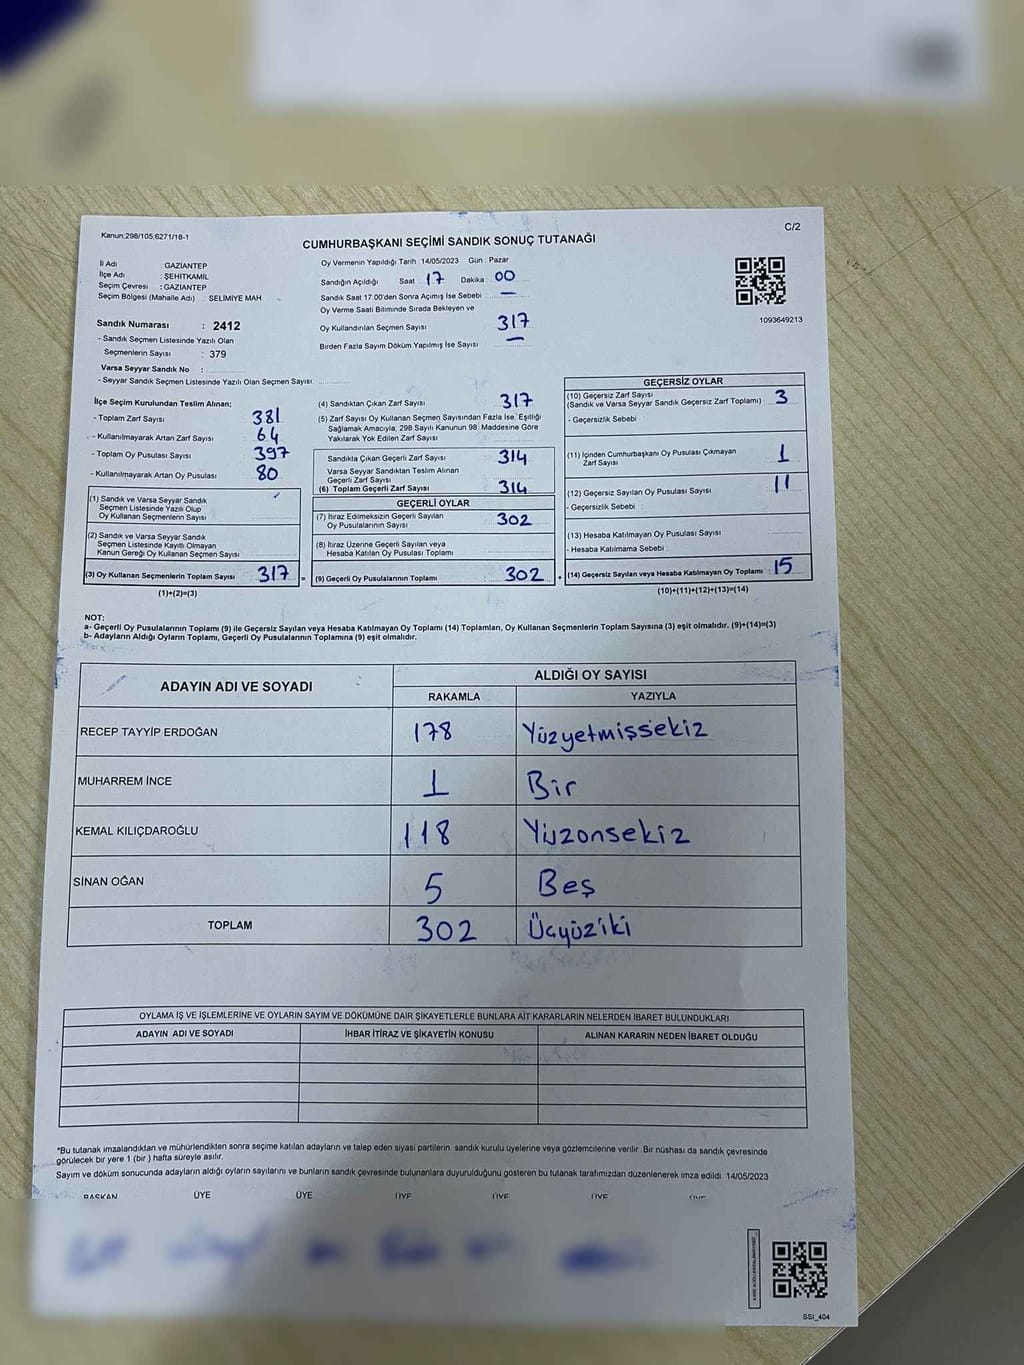 Kanun;298/105;6271/18-1
C/2
CUMHURBAŞKANI SEÇİMİ SANDIK SONUÇ TUTANAĞI
İl Adı : GAZİANTEP
İlçe Adı : ŞEHİTKAMİL
Seçim Çevresi : GAZİANTEP
Seçim Bölgesi (Mahalle Adı) : SELİMİYE MAH
Sandık Numarası : 2412
- Sandık Seçmen Listesinde Yazılı Olan
Seçmenlerin Sayısı : 379
Varsa Seyyar Sandık No :
- Seyyar Sandık Seçmen Listesinde Yazılı Olan Seçmen Sayısı
Oy Vermenin Yapıldığı Tarih : 14/05/2023 Gün : Pazar
Sandığın Açıldığı Saat 17 Dakika : 00
Sandık Saat 17:00'den Sonra Açılmış İse Sebebi —
Oy Verme Saati Bitiminde Sırada Bekleyen ve
Oy Kullandırılan Seçmen Sayısı 317
Birden Fazla Sayım Döküm Yapılmış İse Sayısı —
1093649213
İlçe Seçim Kurulundan Teslim Alınan;
- Toplam Zarf Sayısı 381
- Kullanılmayarak Artan Zarf Sayısı 64
- Toplam Oy Pusulası Sayısı 397
- Kullanılmayarak Artan Oy Pusulası 80
(1) Sandık ve Varsa Seyyar Sandık
Seçmen Listesinde Yazılı Olup
Oy Kullanan Seçmenlerin Sayısı
(2) Sandık ve Varsa Seyyar Sandık
Seçmen Listesinde Kayıtlı Olmayan
Kanun Gereği Oy Kullanan Seçmen Sayısı
(3) Oy Kullanan Seçmenlerin Toplam Sayısı 317
(1)+(2)=(3)
(4) Sandıktan Çıkan Zarf Sayısı 317
(5) Zarf Sayısı Oy Kullanan Seçmen Sayısından Fazla İse, Eşitliği
Sağlamak Amacıyla, 298 Sayılı Kanunun 98. Maddesine Göre
Yakılarak Yok Edilen Zarf Sayısı
Sandıkta Çıkan Geçerli Zarf Sayısı 314
Varsa Seyyar Sandıktan Teslim Alınan
Geçerli Zarf Sayısı
(6) Toplam Geçerli Zarf Sayısı 314
GEÇERLİ OYLAR
(7) İtiraz Edilmeksizin Geçerli Sayılan
Oy Pusulalarının Sayısı 302
(8) İtiraz Üzerine Geçerli Sayılan veya
Hesaba Katılan Oy Pusulası Toplamı
= (9) Geçerli Oy Pusulalarının Toplamı 302
GEÇERSİZ OYLAR
(10) Geçersiz Zarf Sayısı
(Sandık ve Varsa Seyyar Sandık Geçersiz Zarf Toplamı) 3
- Geçersizlik Sebebi
(11) İçinden Cumhurbaşkanı Oy Pusulası Çıkmayan
Zarf Sayısı 1
(12) Geçersiz Sayılan Oy Pusulası Sayısı 11
- Geçersizlik Sebebi :
(13) Hesaba Katılmayan Oy Pusulası Sayısı
- Hesaba Katılmama Sebebi :
+ (14) Geçersiz Sayılan veya Hesaba Katılmayan Oy Toplamı 15
(10)+(11)+(12)+(13)=(14)
NOT:
a- Geçerli Oy Pusulalarının Toplamı (9) ile Geçersiz Sayılan veya Hesaba Katılmayan Oy Toplamı (14) Toplamları, Oy Kullanan Seçmenlerin Toplam Sayısına (3) eşit olmalıdır. (9)+(14)=(3)
b- Adayların Aldığı Oyların Toplamı, Geçerli Oy Pusulalarının Toplamına (9) eşit olmalıdır.
ADAYIN ADI VE SOYADI ALDIĞI OY SAYISI
RAKAMLA YAZIYLA
RECEP TAYYİP ERDOĞAN 178 Yüzyetmişsekiz
MUHARREM İNCE 1 Bir
KEMAL KILIÇDAROĞLU 118 Yüzonsekiz
SİNAN OĞAN 5 Beş
TOPLAM 302 Üçyüziki
OYLAMA İŞ VE İŞLEMLERİNE VE OYLARIN SAYIM VE DÖKÜMÜNE DAİR ŞİKAYETLERLE BUNLARA AİT KARARLARIN NELERDEN İBARET BULUNDUKLARI
ADAYIN ADI VE SOYADI İHBAR İTİRAZ VE ŞİKAYETİN KONUSU ALINAN KARARIN NEDEN İBARET OLDUĞU
*Bu tutanak imzalandıktan ve mühürlendikten sonra seçime katılan adayların ve talep eden siyasi partilerin sandık kurulu üyelerine veya gözlemcilerine verilir. Bir nüshası da sandık çevresinde
görülecek bir yere 1 (bir) hafta süreyle asılır.
Sayım ve döküm sonucunda adayların aldığı oyların sayılarını ve bunların sandık çevresinde bulunanlara duyurulduğunu gösteren bu tutanak tarafımızdan düzenlenerek imza edildi. 14/05/2023
BAŞKAN ÜYE ÜYE ÜYE ÜYE ÜYE ÜYE
SSI_404